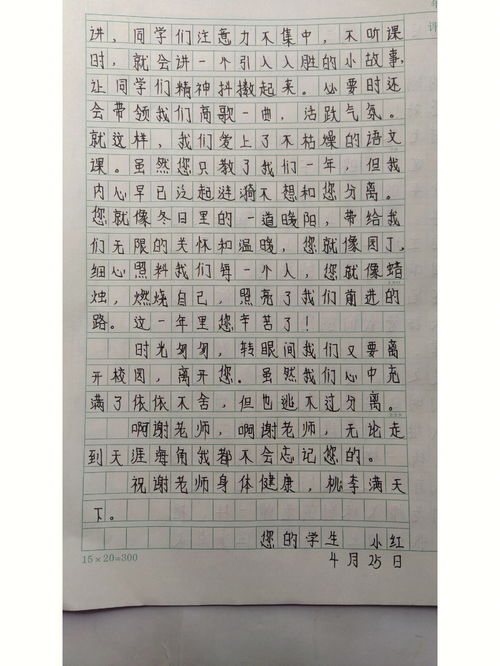 讲，同学们注意力不集中，不听课
时，就会讲一个引人入胜的小故事，
让同学们精神抖擞起来。必要时还
会带领我们高歌一曲，活跃气氛。
就这样，我们爱上了不枯燥的语文
课。虽然您只教了我们一年，但我
内心早已泛起涟漪不想和您分离。
您就像冬日里的一道暖阳，带给我
们无限的关怀和温暖，您就像园丁，
细心照料我们每一个人，您就像蜡
烛，燃烧自己，照亮了我们前进的
路。这一年里您辛苦了！
时光匆匆，转眼间我们又要离
开校园，离开您。虽然我们心中充
满了依依不舍，但也逃不过分离。
啊谢老师，啊谢老师，无论走
到天涯海角我都不会忘记您的。
祝谢老师身体健康，桃李满天
下。
您的学生 小红
4月25日
15×20=300